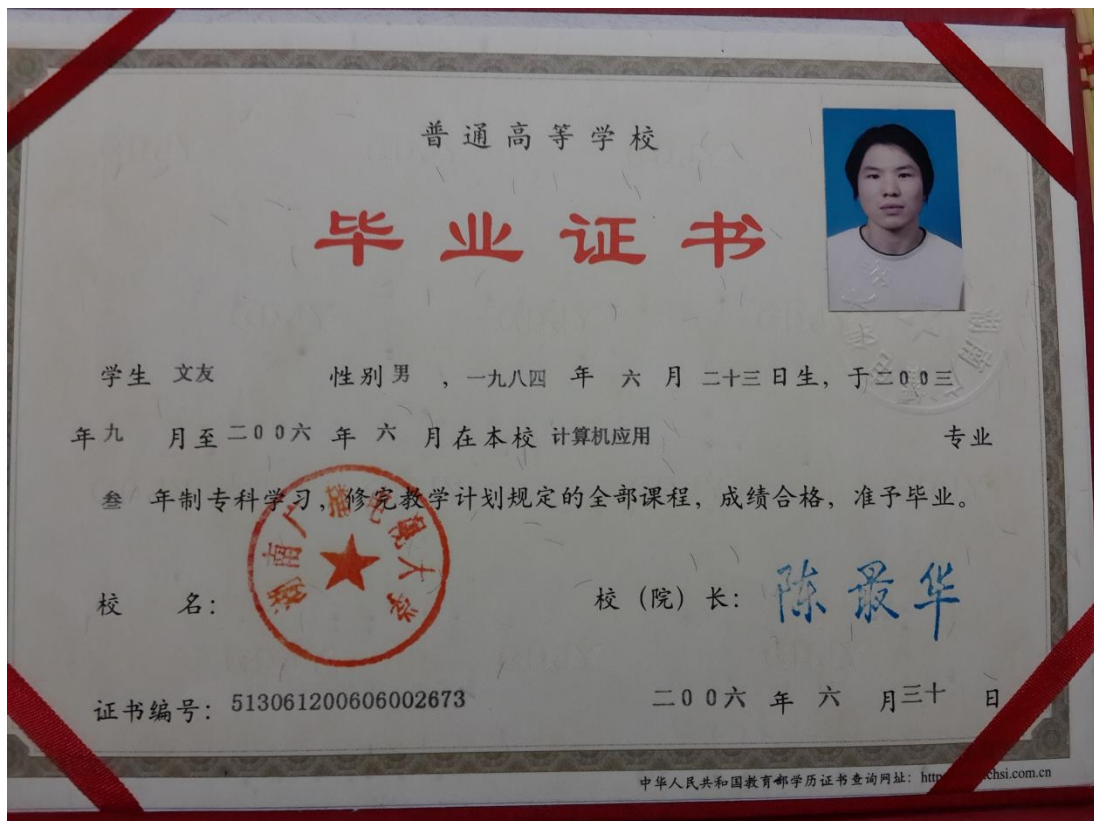 普通高等学校
毕业证书
学生 文友 性别 男 , 一九八四 年 六 月 二十三 日生, 于 二00三
年 九 月至 二00六 年 六 月在本校 计算机应用 专业
叁 年制专科学习, 修完教学计划规定的全部课程, 成绩合格, 准予毕业。
湖南广播电视大学
校 名:
校 (院) 长: 陈最华
证书编号: 513061200606002673
二00六 年 六 月 三十 日
中华人民共和国教育部学历证书查询网址: http chsi.com.cn